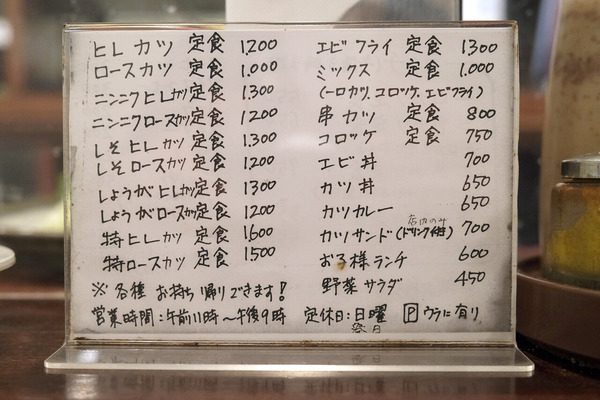 ヒレカツ 定食 1200
ロースカツ 定食 1.000
ニンニクヒレカツ 定食 1.300
ニンニクロースカツ 定食 1200
しそヒレカツ 定食 1.300
しそロースカツ 定食 1200
しょうがヒレカツ 定食 1300
しょうがロースカツ 定食 1200
特ヒレカツ 定食 1600
特ロースカツ 定食 1500
※各種 お持ち帰りできます!
営業時間:午前11時〜午後9時
エビフライ 定食 1.300
ミックス 定食 1.000
(一口カツ、コロッケ、エビフライ)
串カツ 定食 800
コロッケ 定食 750
エビ丼 700
カツ丼 650
カツカレー 650
店内のみ
カツサンド(ドリンク付) 700
お子様ランチ 600
野菜サラダ 450
定休日:日曜 🄿ウラに有り
祭日